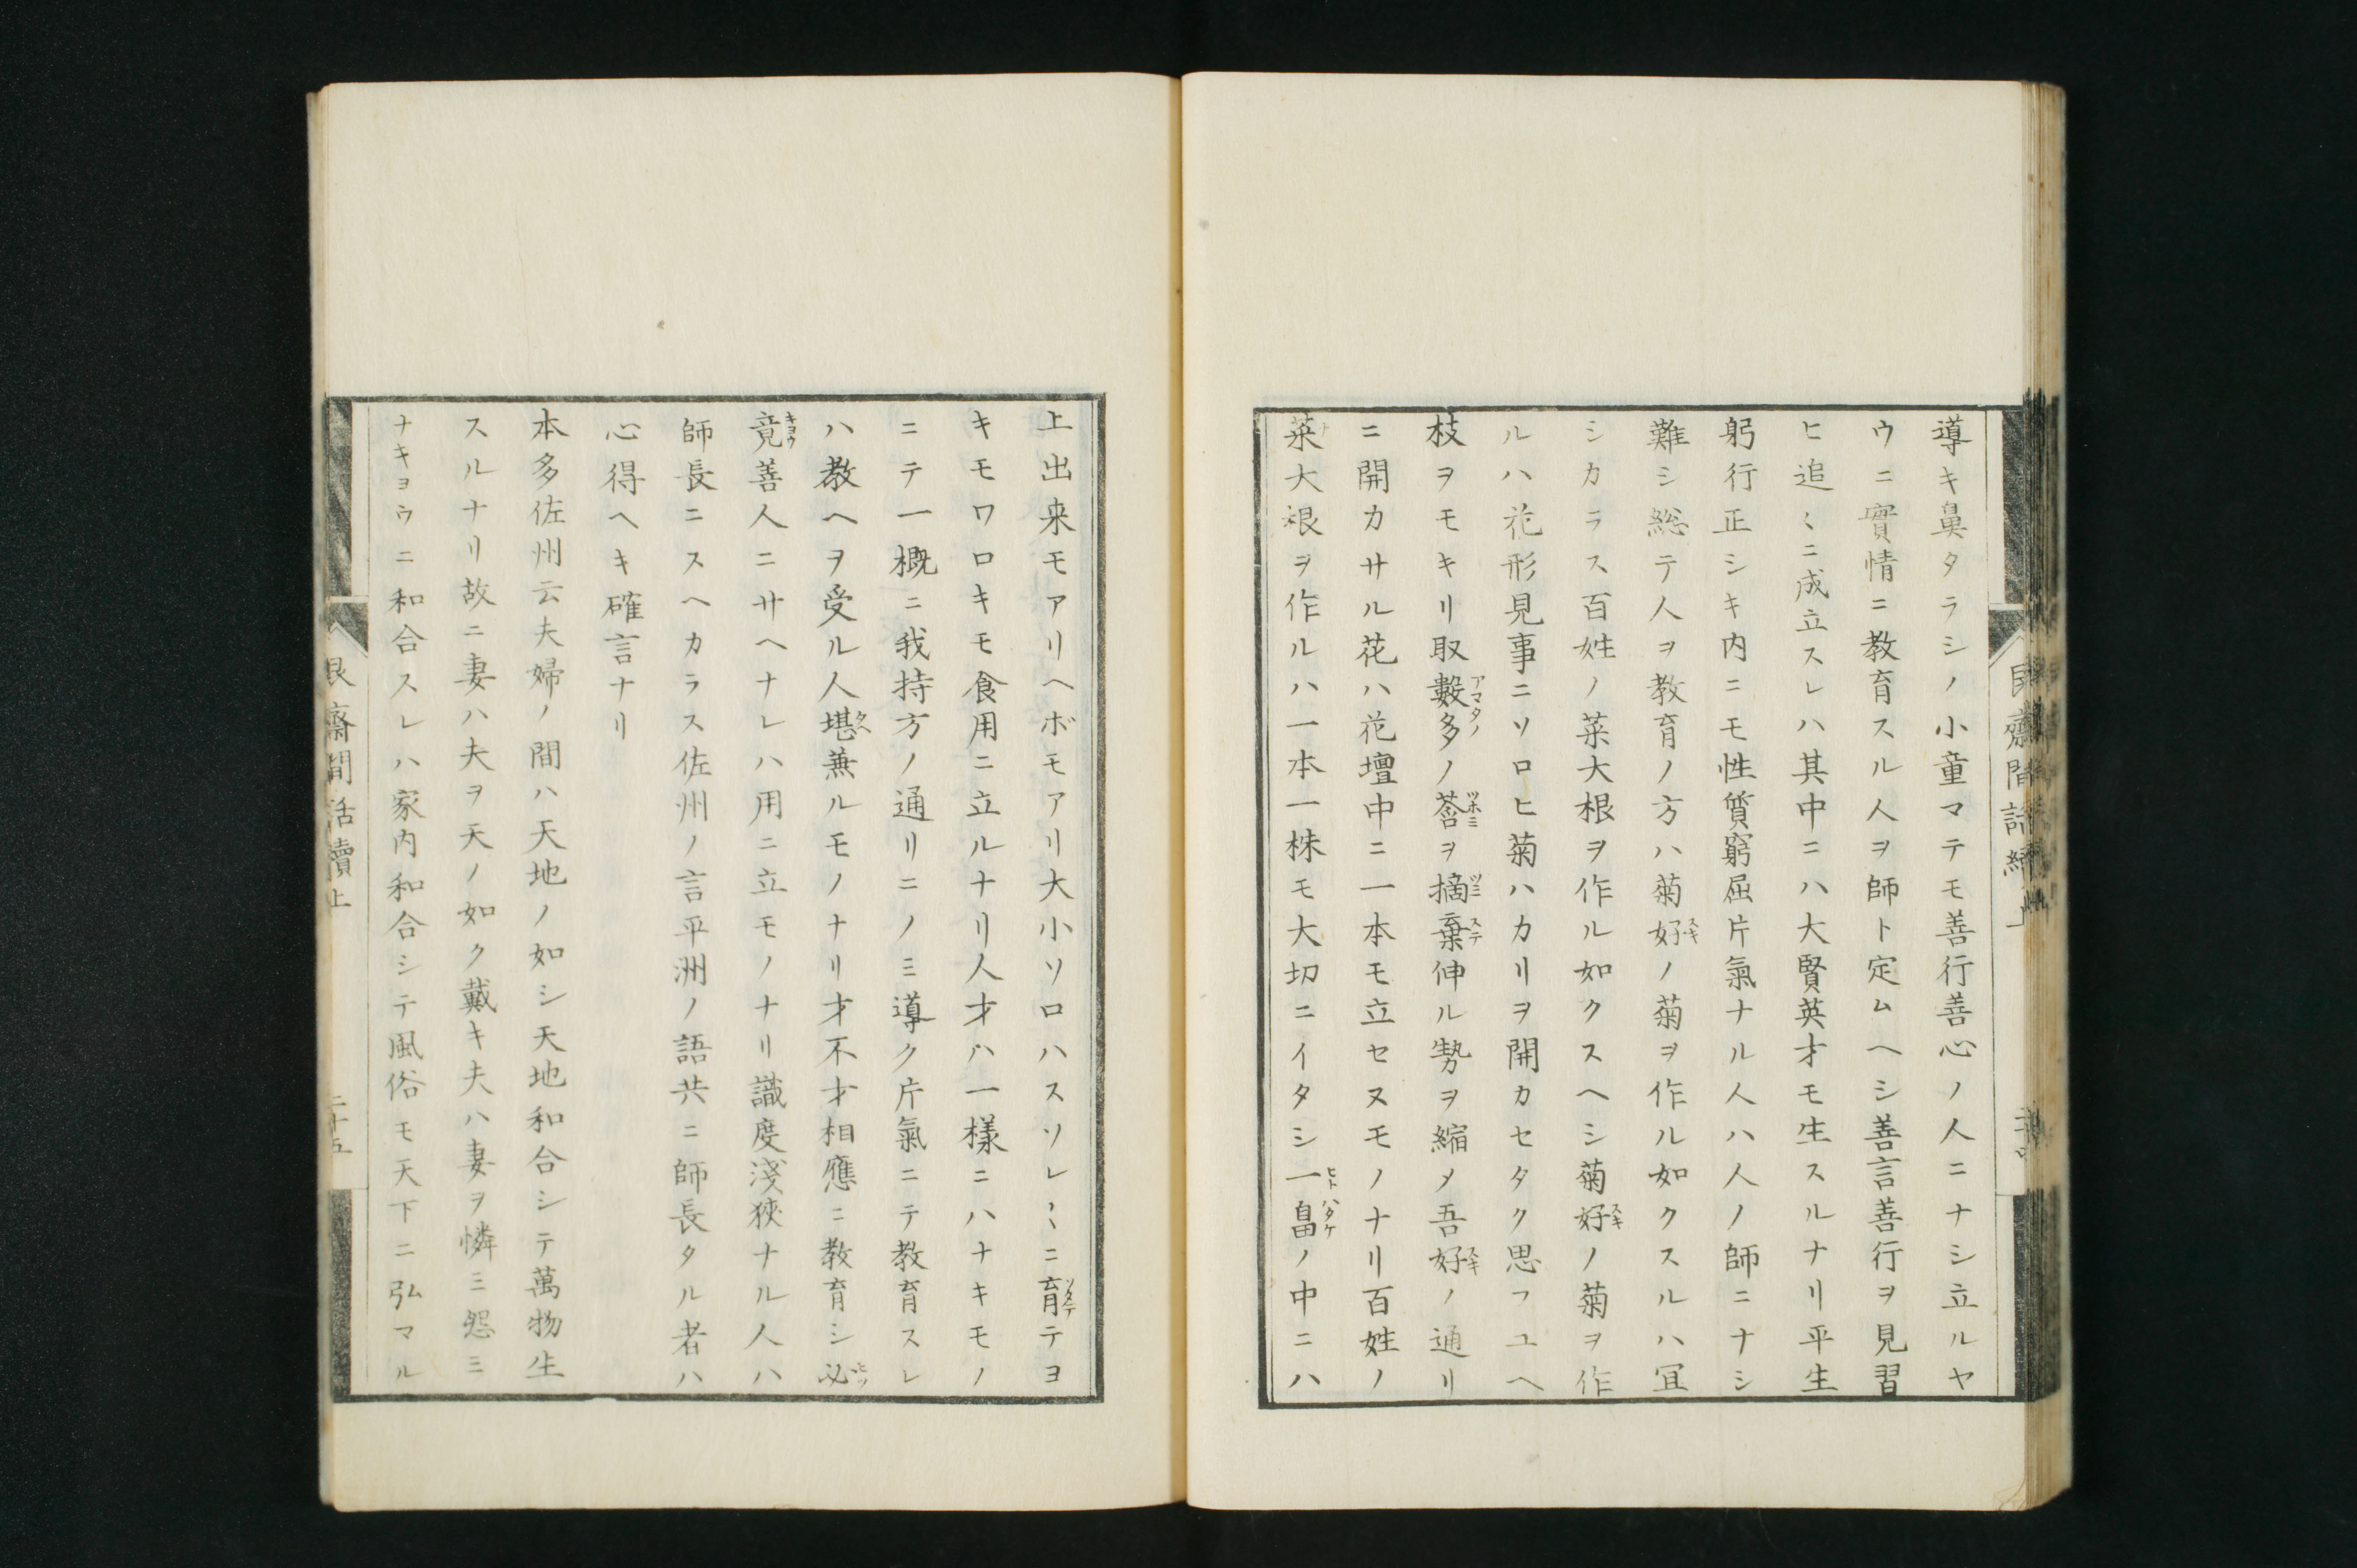 導キ鼻タラシノ小童マテモ善行善心ノ人ニナシ立ルヤ
ウニ實情ニ教育スル人ヲ師ト定ムヘシ善言善行ヲ見習
ヒ追〻ニ成立スレハ其中ニハ大賢英才モ生スルナリ平生
躬行正シキ内ニモ性質窮屈片氣ナル人ハ人ノ師ニナシ
難シ総テ人ヲ教育ノ方ハ菊好スキノ菊ヲ作ル如クスルハ冝
シカラス百姓ノ菜大根ヲ作ル如クスヘシ菊好スキノ菊ヲ作
ルハ花形見事ニソロヒ菊ハカリヲ開カセタク思フユヘ
枝ヲモキリ取數多アマタノノ莟ツホミヲ摘ツミ棄ステ伸ル勢ヲ縮メ吾好スキノ通リ
ニ開カサル花ハ花壇中ニ一本モ立セヌモノナリ百姓ノ
菜ナ大根ヲ作ルハ一本一株モ大切ニイタシ一ヒト畠ハタケノ中ニハ
上出来モアリヘボモアリ大小ソロハスソレ〱ニ育ソタテテヨ
キモワロキモ食用ニ立ルナリ人才ハ一様ニハナキモノ
ニテ一概ニ我持方ノ通リニノミ導ク片氣ニテ教育スレ
ハ教ヘヲ受ル人堪タヘ兼ルモノナリ才不才相應ニ教育シ必ヒツ
竟キヨウ善人ニサヘナレハ用ニ立モノナリ識度淺狹ナル人ハ
師長ニスヘカラス佐州ノ言平洲ノ語共ニ師長タル者ハ
心得ヘキ確言ナリ
本多佐州云夫婦ノ間ハ天地ノ如シ天地和合シテ萬物生
スルナリ故ニ妻ハ夫ヲ天ノ如ク戴キ夫ハ妻ヲ憐ミ怨ミ
ナキヨウニ和合スレハ家内和合シテ風俗モ天下ニ弘マル
艮齋間話續上
二十五